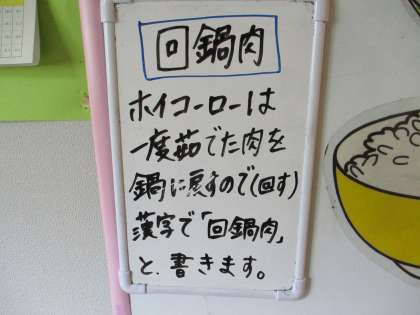 回鍋肉
ホイコーローは
一度茹でた肉を
鍋に戻すので(回す)
漢字で「回鍋肉」
と、書きます。